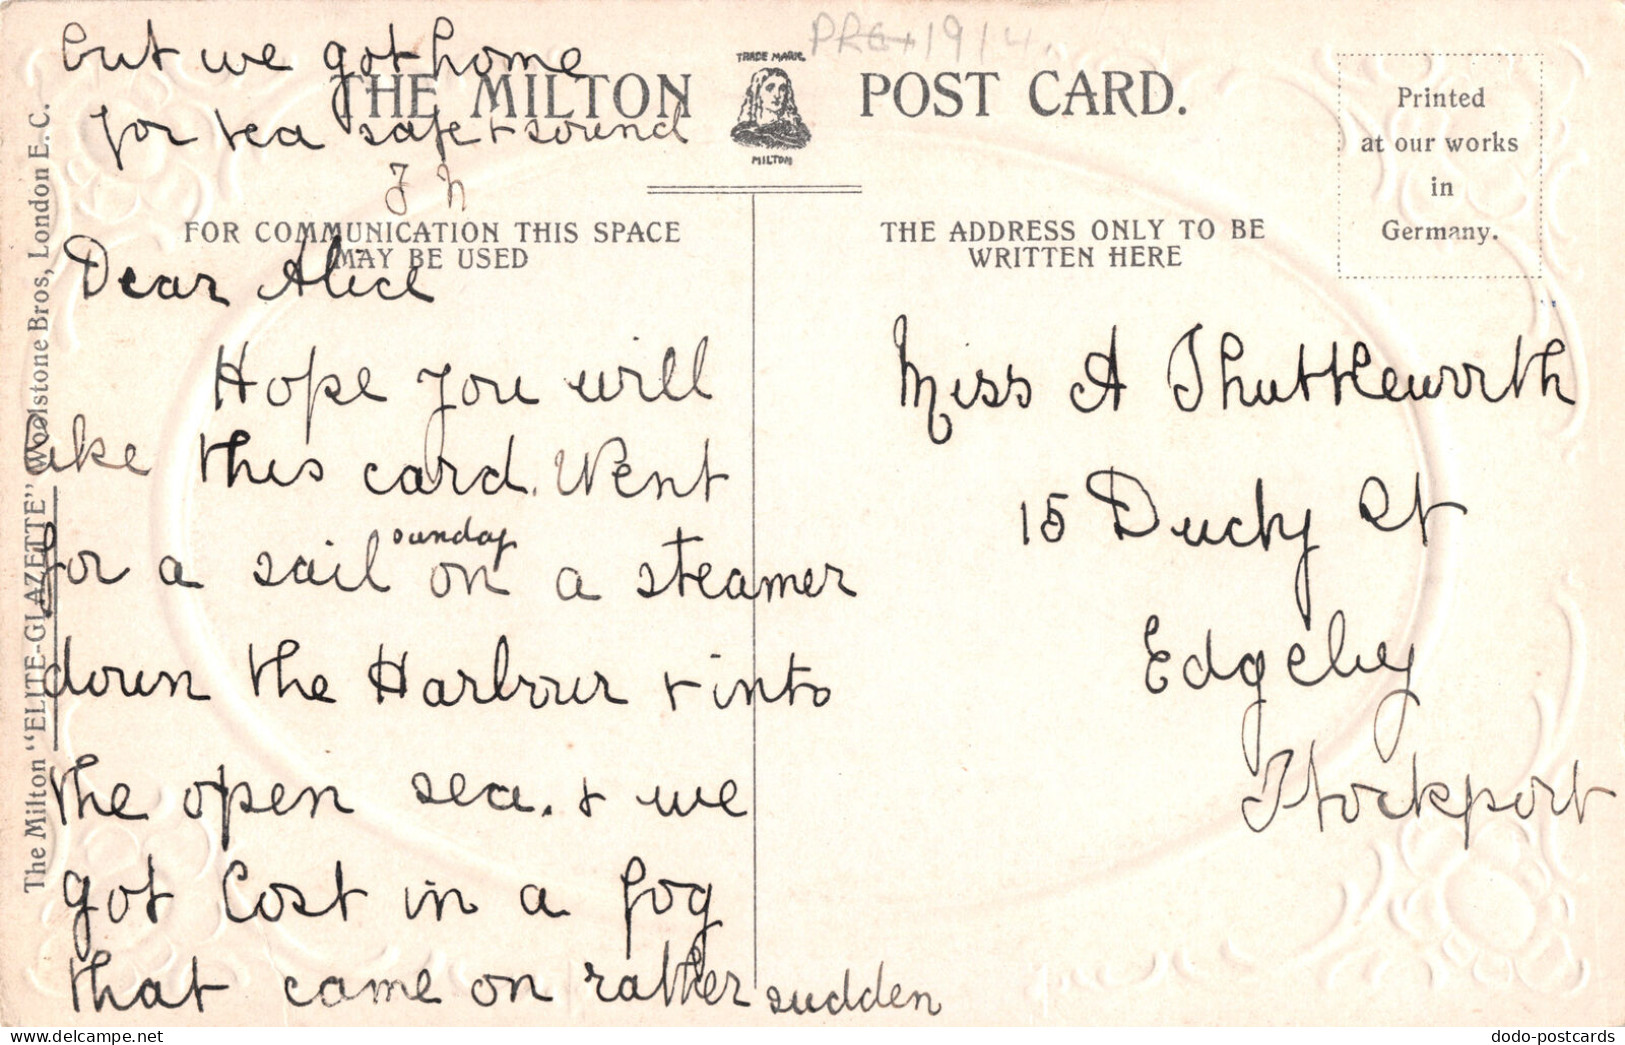 PRE 1914.
but we got home
for tea safe & sound
J N
THE MILTON POST CARD.
TRADE MARK
MILTON
Printed
at our works
in
Germany.
FOR COMMUNICATION THIS SPACE
MAY BE USED
THE ADDRESS ONLY TO BE
WRITTEN HERE
The Milton "ELITE-GLAZETTE" Woolstone Bros, London E. C.
Dear Alice
Hope you will
like this card. Went
for a sail sunday on a steamer
down the Harbour & into
the open sea. & we
got lost in a fog
that came on rather sudden
Miss A Shuttleworth
15 Duchy St
Edgeley
Stockport
dodo-postcards